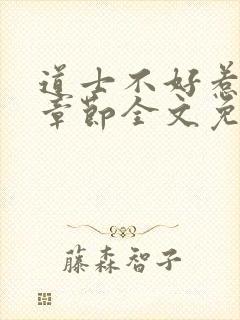 道士不好惹
章节全文免
藤森智子